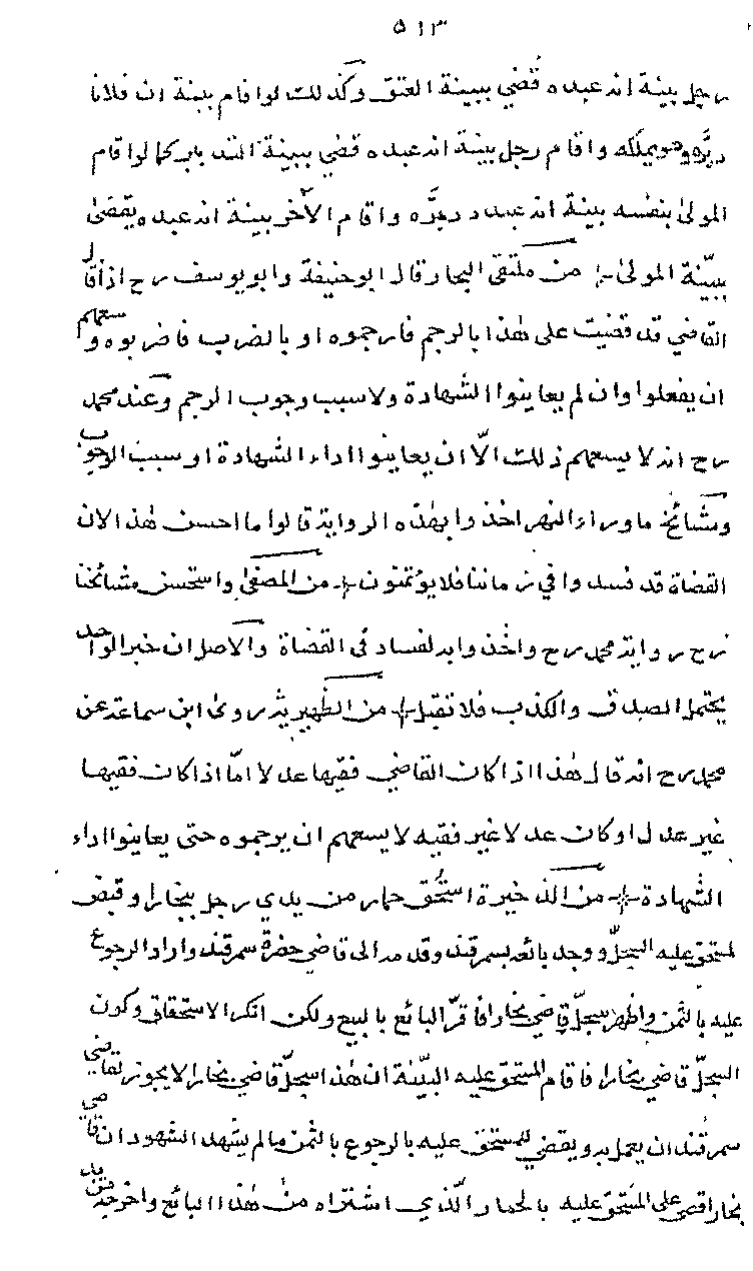 ٥١٣
رجل بينة انه عبده قُضي ببينة العتق وكذلك لو اقام بينة ان فلانا
دبّره وهو يملكه واقام رجل بينة انه عبده قضي ببينة التدبير كما لو اقام
المولىٰ بنفسه بينة انه عبده دبّره واقام الآخر بينة انه عبده يقضىٰ
ببيّنة المولىٰ من ملتقى البحار قال ابو حنيفة وابو يوسف رح اذا قال
القاضي قد قضيت على هٰذا بالرجم فارجموه او بالضرب فاضربوه وسعهم
ان يفعلوا وان لم يعاينوا الشهادة ولا سبب وجوب الرجم وعند محمد
رح انه لا يسعهم ذلك الّا ان يعاينوا اداء الشهادة او سبب الوجوب
ومشائخ ما وراء النهر اخذوا بهٰذه الرواية قالوا ما احسن هٰذا لان
القضاة قد فسدوا في زماننا فلا يؤتمنون من المصفىٰ واستحسن مشائخنا
رح رواية محمد رح واخذوا به لفساد في القضاة والاصل ان خبر الواحد
يحتمل الصدق والكذب فلا تقبل من الظهيرية روىٰ ابن سماعة عن
محمد رح انه قال هٰذا اذا كان القاضي فقيها عدلا امّا اذا كان فقيها
غير عدل او كان عدلا غير فقيه لا يسعهم ان يرجموه حتى يعاينوا اداء
الشهادة من الذخيرة استُحق حمار من يدي رجل ببخارا وقبض
المستحق عليه السجلّ ووجد بائعه بسمرقند وقدمه الى قاضي حضرة سمرقند واراد الرجوع
عليه بالثمن واظهر سجلّ قاضي بخارا فاقرّ البائع بالبيع ولكن انكر الاستحقاق وكون
السجلّ قاضي بخارا فاقام المستحق عليه البيّنة ان هٰذا سجلّ قاضي بخارا لا يجوز لقاضي
سمرقند ان يعمل به ويقضي للمستحق عليه بالرجوع بالثمن ما لم يشهد الشهود ان قاضي
بخارا قضى على المستحق عليه بالحمار الّذي اشتراه من هٰذا البائع واخرجه من يد